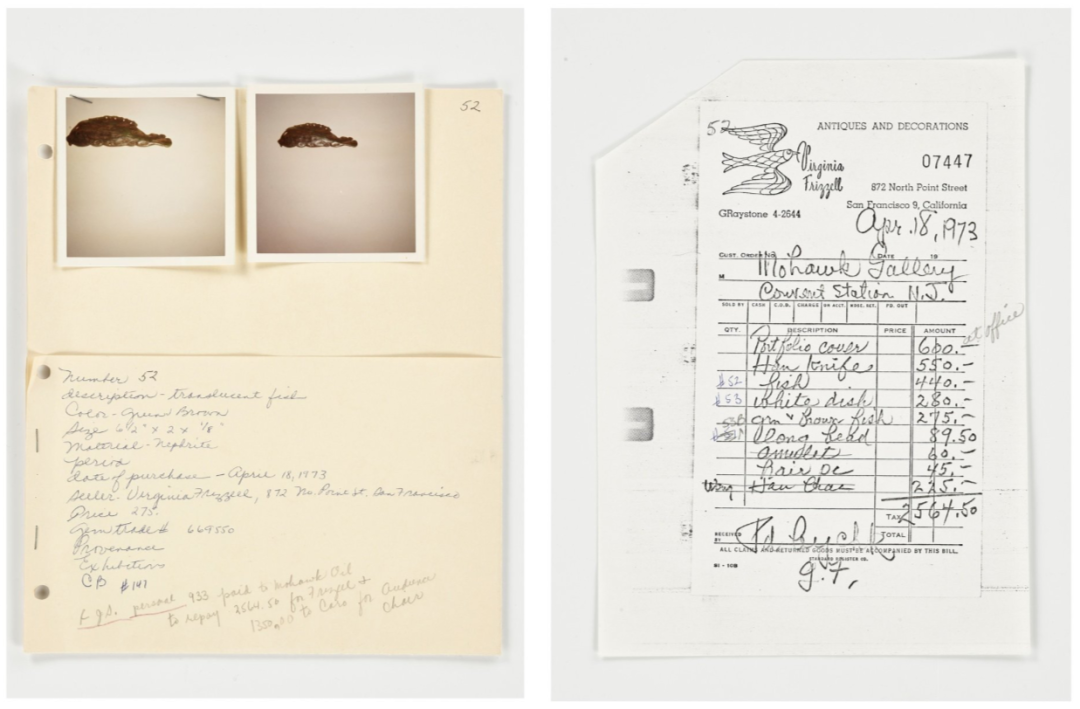 52
Number 52
description - translucent fish
Color - Green Brown
Size 6½" x 2 x ⅛"
Material - Nephrite
period
date of purchase - April 18, 1973
Seller - Virginia Frizzell, 872 No. Point St. San Francisco
Price 275.
Gem trade # 669550
Provenance
Exhibitions
CB #141
personal 933 paid to Mohawk Oil
to repay 2564.50 for Frizzel +
1350.00 to Caro for Audience
Chair
52
ANTIQUES AND DECORATIONS
Virginia
Frizzell
07447
872 North Point Street
San Francisco 9, California
GRaystone 4-2644
Apr. 18, 1973
CUST. ORDER NO. DATE 19
M Mohawk Gallery
Convent Station N.J.
SOLD BY CASH C.O.D. CHARGE ON ACCT. MDSE. RET. PD. OUT
QTY. DESCRIPTION PRICE AMOUNT
at office
Portfolio cover 600.-
Han Knife 550.-
#52 fish 440.-
#53 White disk 280.-
grn + Brown fish 275.-
long bead 89.50
amulet 60.-
hair pc 45.-
Han 225.-
TAX 2564.50
RECEIVED BY
TOTAL
ALL CLAIMS AND RETURNED GOODS MUST BE ACCOMPANIED BY THIS BILL.
STANDARD REGISTER CO.